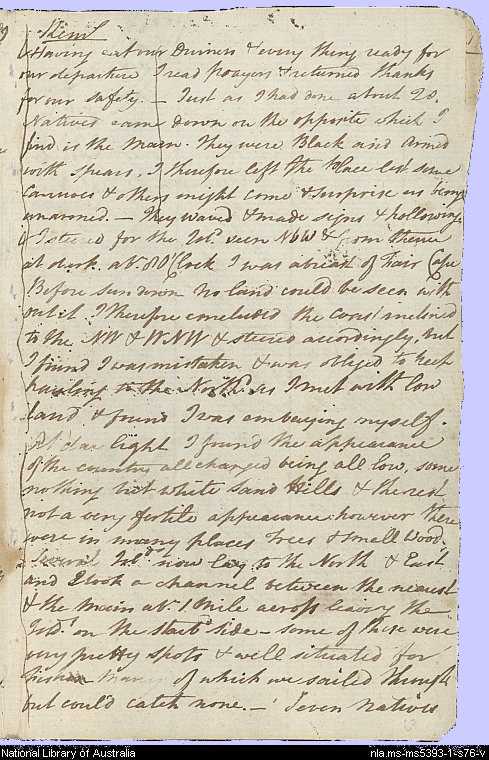 Having eat our Dinners & every thing ready for
our departure I read prayers & returned thanks
for our safety. — Just as I had done about 20
Natives came down on the opposite which I
find is the Main. They were Black and Armed
with spears, I therefore left the place lest some
Cannoes & others might come & surprise us being
unarmed. — They waved & made signs & hollowing
I steered for the Isld. seen NbW & from thence
at dark. abt. 8 O'Clock I was abreast of Fair Cape
Before sun down no land could be seen with
out it I therefore concluded the coast inclined
to the NW & WNW & steered accordingly, but
I found I was mistaken & was obliged to keep
hauling to the Northd. as I met with low
land & found I was embaying myself.
At day light I found the appearance
of the country all changed being all low, some
nothing but white sand Hills & the rest
not a very fertile appearance however there
were in many places Trees & small wood.
Several Islds. now lay to the North & East
and I took a channel between the nearest
& the main abt. 1 Mile across leaving the
Isds. on the starbd. side — some of these were
very pretty spots & well situated for
fishing many of which we sailed through
but could catch none. — Seven Natives
National Library of Australia
nla.ms-ms5393-1-s76-v